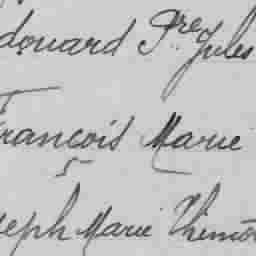 douard Pre Jules
rançois Marie
seph Marie